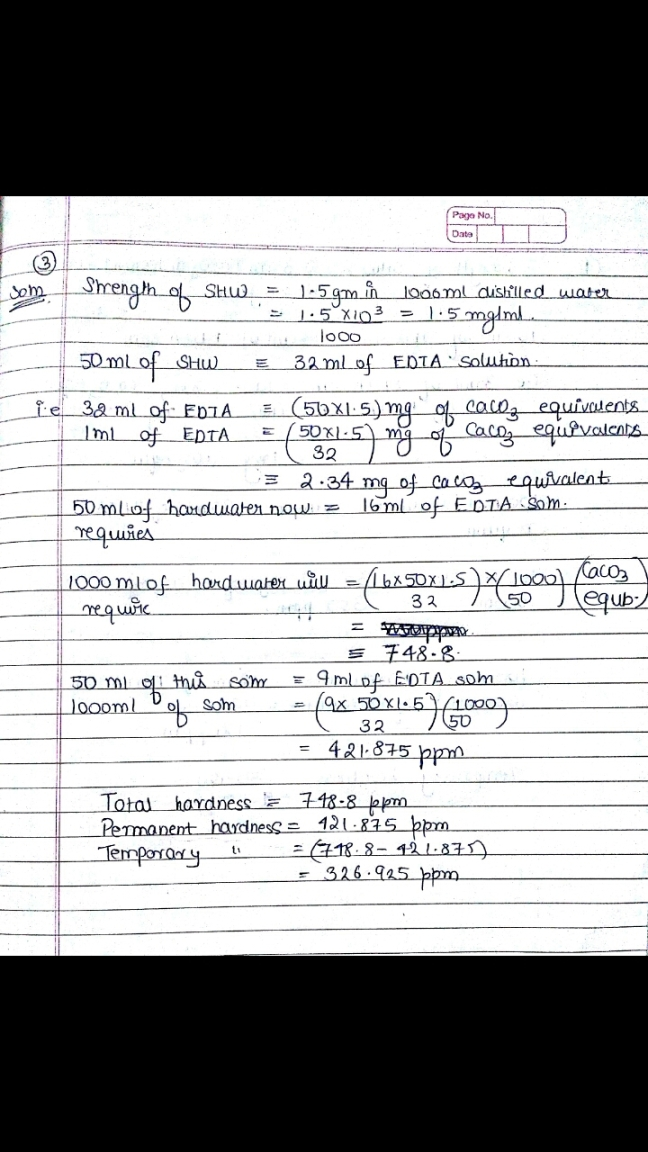 Page No.
Date
3
Soln Strength of SHW = 1.5gm in 1000ml distilled water
= 1.5 × 10³ / 1000 = 1.5 mg/ml.
50 ml of SHW ≡ 32 ml of EDTA solution.
i.e 32 ml of EDTA ≡ (50×1.5) mg of CaCO3 equivalents
1ml of EDTA ≡ (50×1.5 / 32) mg of CaCO3 equivalents
≡ 2.34 mg of CaCO3 equivalent
50 ml of hardwater now = 16 ml of EDTA soln.
requries
1000 ml of hardwater will = (16×50×1.5 / 32) × (1000 / 50) (CaCO3 / equb.)
requir
=
= 748.8
50 ml of this soln = 9 ml of EDTA soln
1000ml of soln = (9× 50×1.5 / 32) (1000 / 50)
= 421.875 ppm
Total hardness = 748.8 ppm
Permanent hardness = 421.875 ppm
Temporary " = (748.8 - 421.875)
= 326.925 ppm